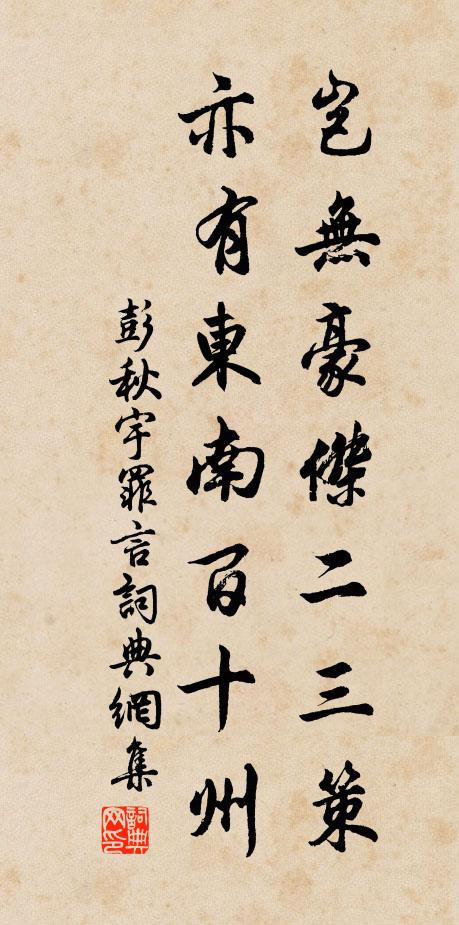 豈無豪傑二三策
亦有東南百十州
彭秋宇罪言詞典網集
詞典網印